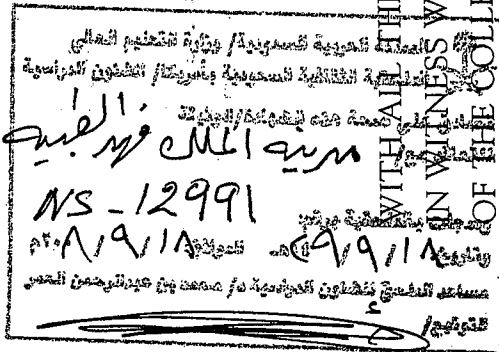 المملكة العربية السعودية/ وزارة التعليم العالي
الملحقية الثقافية السعودية بأمريكا/ الشئون الدراسية
على صحة هذه الشهادة/الوثيقة
مدينة الملك فهد الطبية
NS-12991
وتاريخ ١٨/٩/ هـ الموافق ١٨/٩/ ٢٠م
مساعد الملحق للشئون الدراسية د/ محمد بن عبدالرحمن العمر
التوقيع/
WITH ALL TH
IN WITNESS W
OF THE COLL